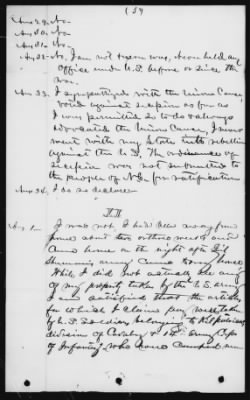 (54
Ans 29. No.
Ans 30. No.
Ans 31. No.
Ans 32. No, I am not nor was, nor held any
office under U.S. before or since the
war.
Ans 33. I sympathized with the Union Cause,
voted against secession as far as
I was permitted to do & always
advocated the Union Cause, I never
went with my State into rebellion
against the U.S. The ordinance of
secession was not submitted to
the people of N.C. for ratification.
Ans 34. I do so declare
II
Ans 1. I was not. I had been away from
home about two or three weeks and
Came home on the night after
army Came
While I did not actually see any
of my property taken by the U.S. army
I am satisfied that the articles
for which I claim pay were taken
by U.S. Soldiers belonging to Kilpatricks
division of Cavalry & 14th army Corps
of Infantry, who camped near